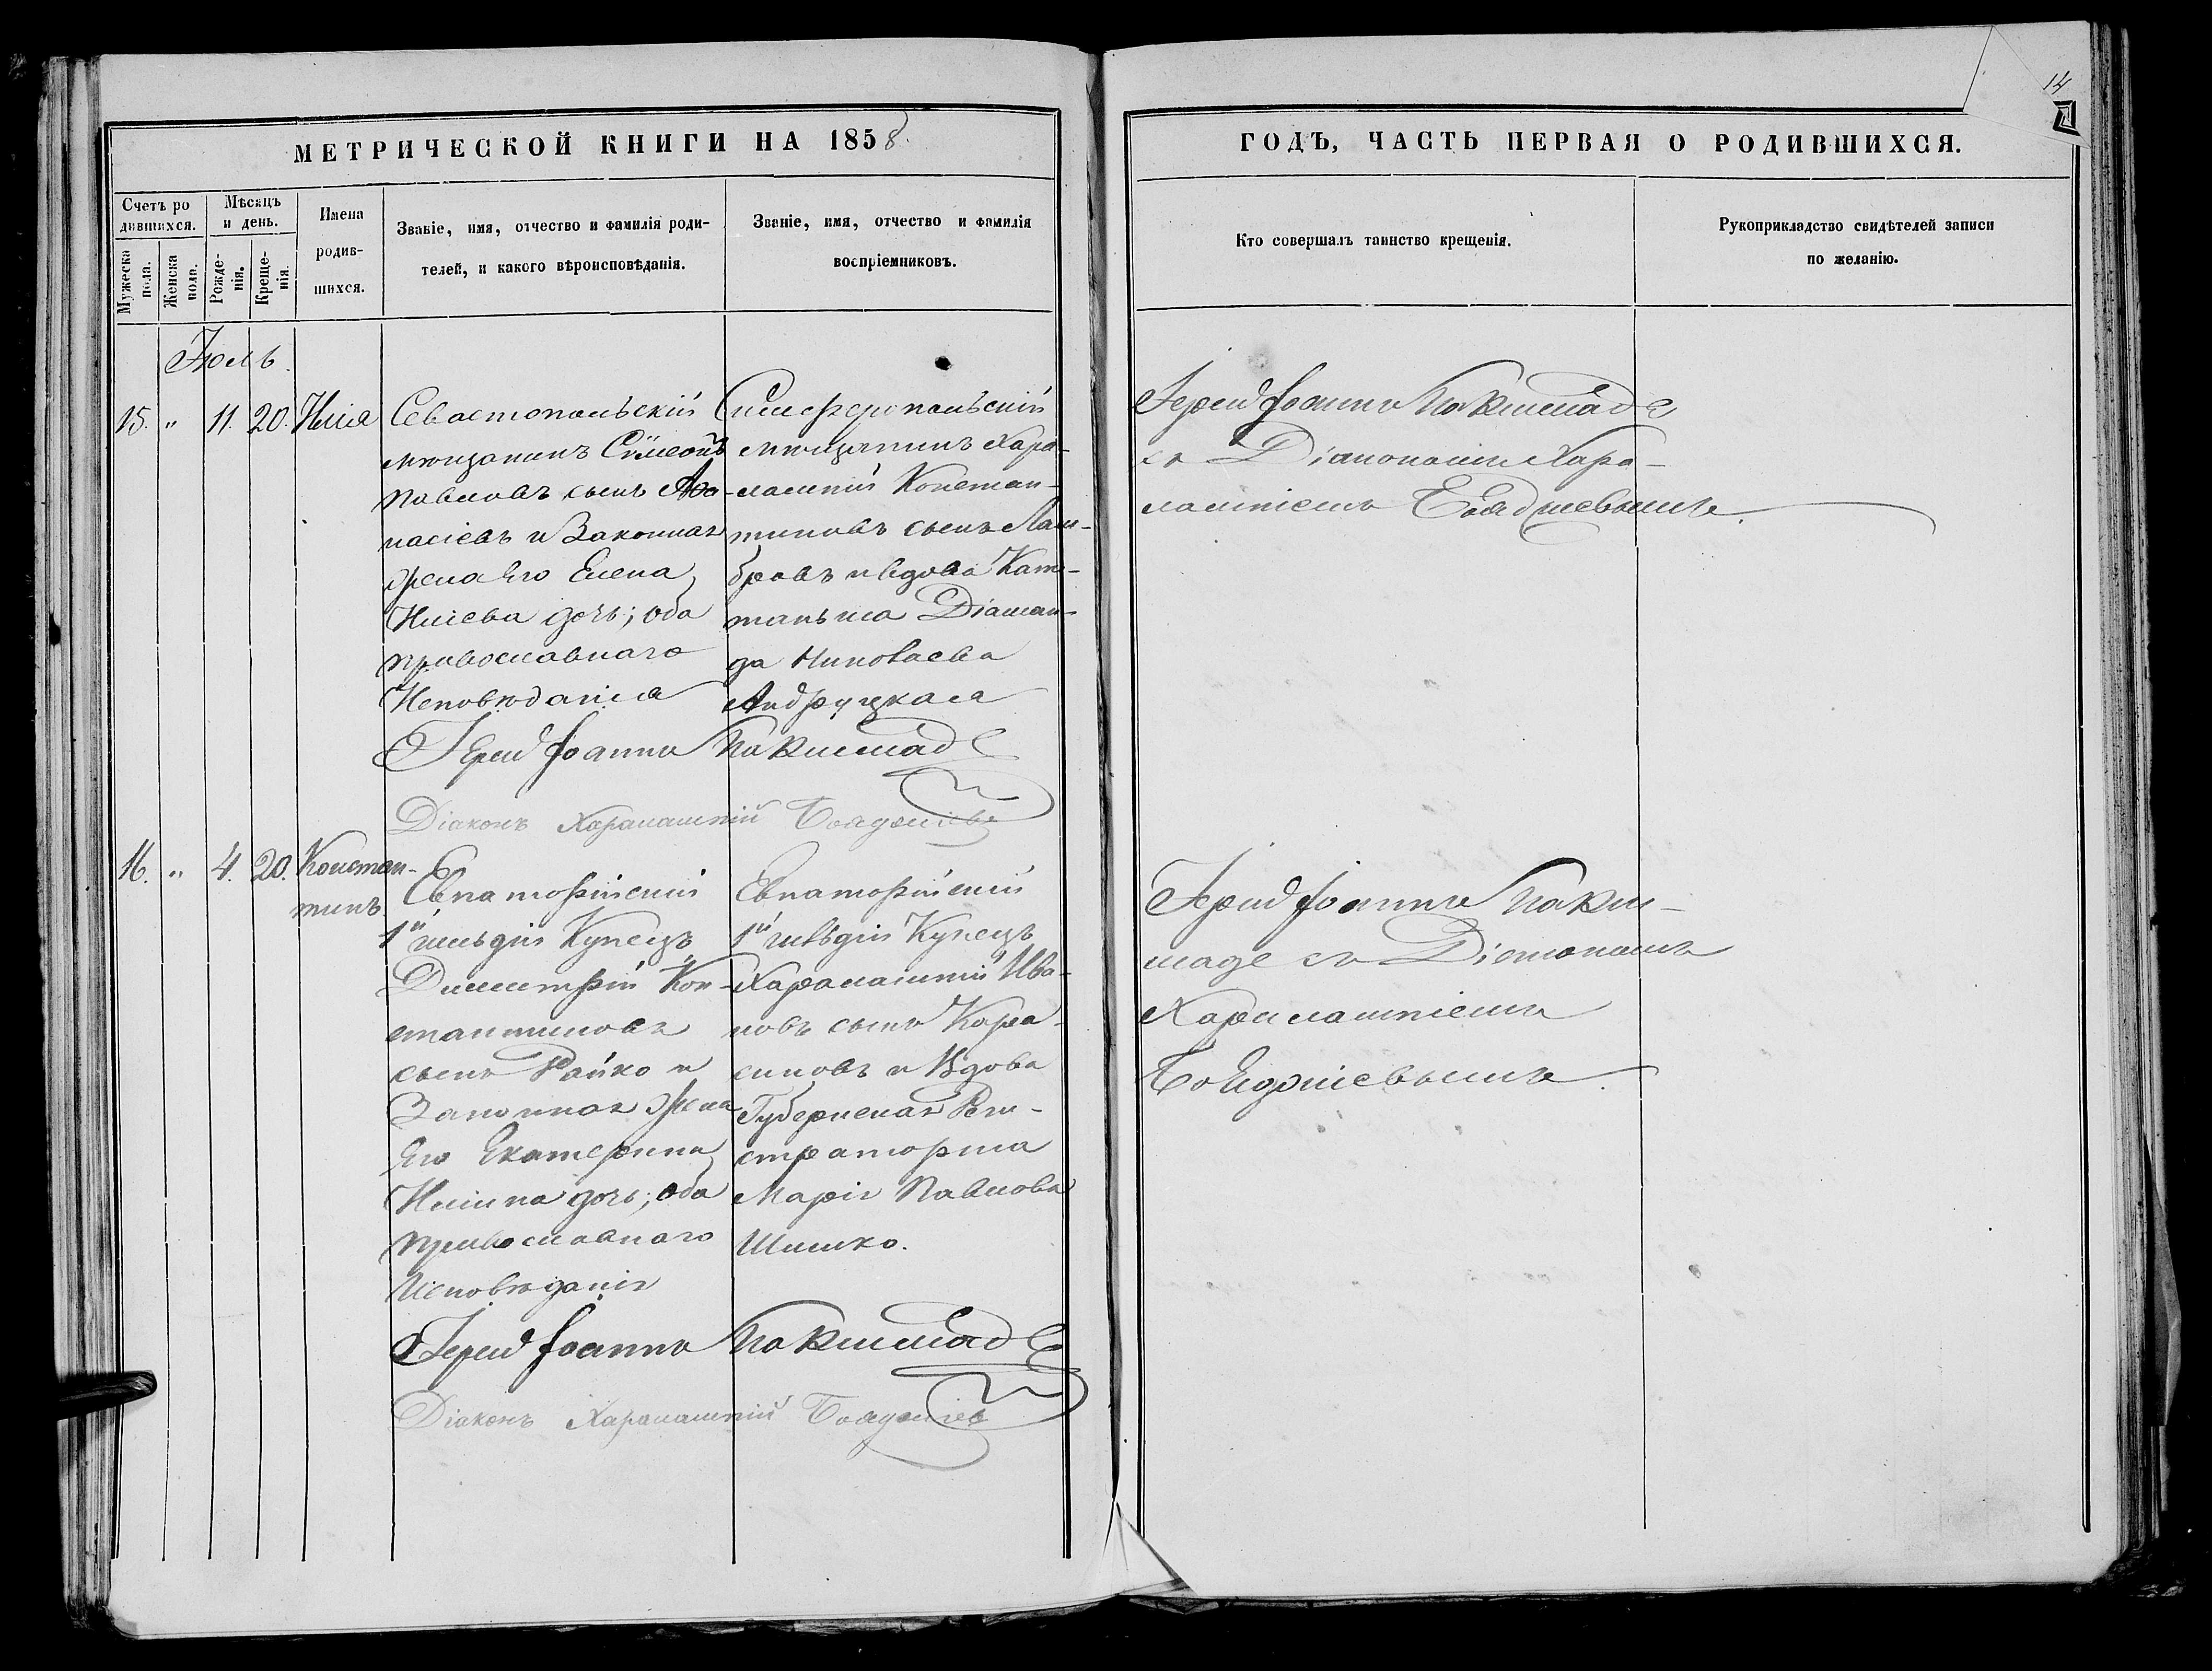 14
МЕТРИЧЕСКОЙ КНИГИ НА 1858
ГОДЪ, ЧАСТЬ ПЕРВАЯ О РОДИВШИХСЯ.
Счетъ ро
дившихся.
Мужеска
пола.
Женска
пола.
Мѣсяцъ
и день.
Рожде-
нія.
Креще-
нія.
Имена
родив-
шихся.
Званіе, имя, отчество и фамилія роди-
телей, и какого вѣроисповѣданія.
Званіе, имя, отчество и фамилія
воспріемниковъ.
Кто совершалъ таинство крещенія.
Рукоприкладство свидѣтелей записи
по желанію.
Іюль.
15. " 11. 20. Илія
Севастопольскій
мѣщанинъ Сѵмеонъ
Павловъ сынъ Аѳа-
насіевъ и Законная
жена Его Елена
Иліева дочь; оба
православнаго
Исповѣданія
Симферопольскій
мѣщанинъ Хара-
лампій Констан-
тиновъ сынъ Лам-
бровъ и вдова Капи-
таньша Діаман-
да Николаева
Іерей Іоаннъ
Діаконъ Харалампій
Іерей Іоаннъ
съ Діакономъ Хара-
лампіемъ
16. " 4. 20. Констан-
тинъ
Евпаторійскій
1й гильдіи Купецъ
Димитрій Кон-
стантиновъ
сынъ Райко и
Законная жена
Его Екатерина
Ильина дочь; оба
православнаго
Исповѣданія
Евпаторійскій
1й гильдіи Купецъ
Харалампій Ива-
новъ сынъ Кара-
синовъ и Вдова
Губернская Реги-
страторша
Марія Павлова
Шишко.
Іерей Іоаннъ
Діаконъ Харалампій
Іерей Іоаннъ
съ Діакономъ
Харалампіемъ